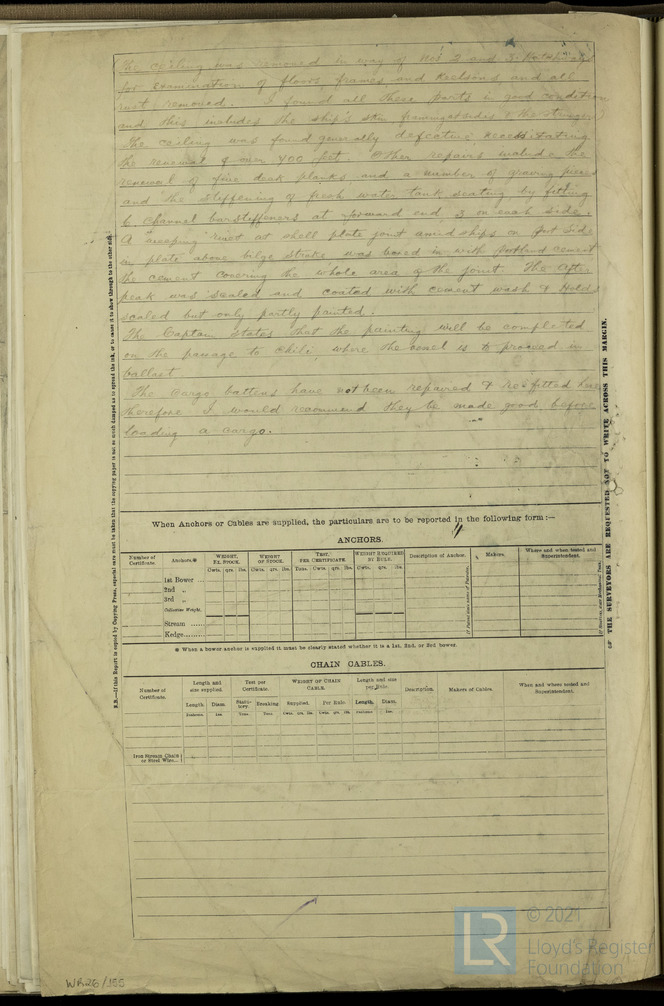 The ceiling was removed in way of Nos 2 and 3 Hatchways
for examination of floors, frames and keelsons and all
rust removed. I found all these parts in good condition
and this includes the ship's side framing & the stringers
The ceiling was found generally defective necessitating
the renewal of over 400 feet. Other repairs include the
renewal of five deck planks and a number of graving pieces
and the stiffening of fresh water tank seating by fitting
6 channel bar stiffeners at forward end 3 on each side.
A "weeping" rivet at shell plate joint amidships on Port Side
in plate above bilge strake was boxed in with portland cement
the cement covering the whole area of the joint. The after
peak was scaled and coated with cement wash & Holds
scaled but only partly painted.
The Captain states that the painting will be completed
on the passage to Chili, where the vessel is to proceed in
ballast
The cargo battens have not been repaired & refitted here
therefore I would recommend they be made good before
loading a cargo.
When Anchors or Cables are supplied, the particulars are to be reported in the following form:—
ANCHORS.
Number of Certificate. Anchors.* WEIGHT, EX. STOCK. WEIGHT OF STOCK. TEST, PER CERTIFICATE. WEIGHT REQUIRED BY RULE. Description of Anchor. Makers. Where and when tested and Superintendent.
Cwts. qrs. lbs. Cwts. qrs. lbs. Tons. Cwts. qrs. lbs. Cwts. qrs. lbs.
1st Bower ...
2nd „
3rd „
Collective Weight.
Stream ......
Kedge........
* When a bower anchor is supplied it must be clearly stated whether it is a 1st, 2nd, or 3rd bower.
CHAIN CABLES.
Number of Certificate. Length and size supplied. Test per Certificate. WEIGHT OF CHAIN CABLE. Length and size per Rule. Description. Makers of Cables. When and where tested and Superintendent.
Length. Diam. Statutory. Breaking. Supplied. Per Rule. Length. Diam.
Fathoms. Ins. Tons. Tons. Cwts. qrs. lbs. Cwts. qrs. lbs. Fathoms. Ins.
Iron Stream Chain or Steel Wire...
N.B.—If this Report is copied by Copying Press, especial care must be taken that the copying paper is not so much damped as to spread the ink, or to cause it to show through to the other side.
THE SURVEYORS ARE REQUESTED NOT TO WRITE ACROSS THIS MARGIN.
WR26/155
LR
© 2021
Lloyd's Register
Foundation